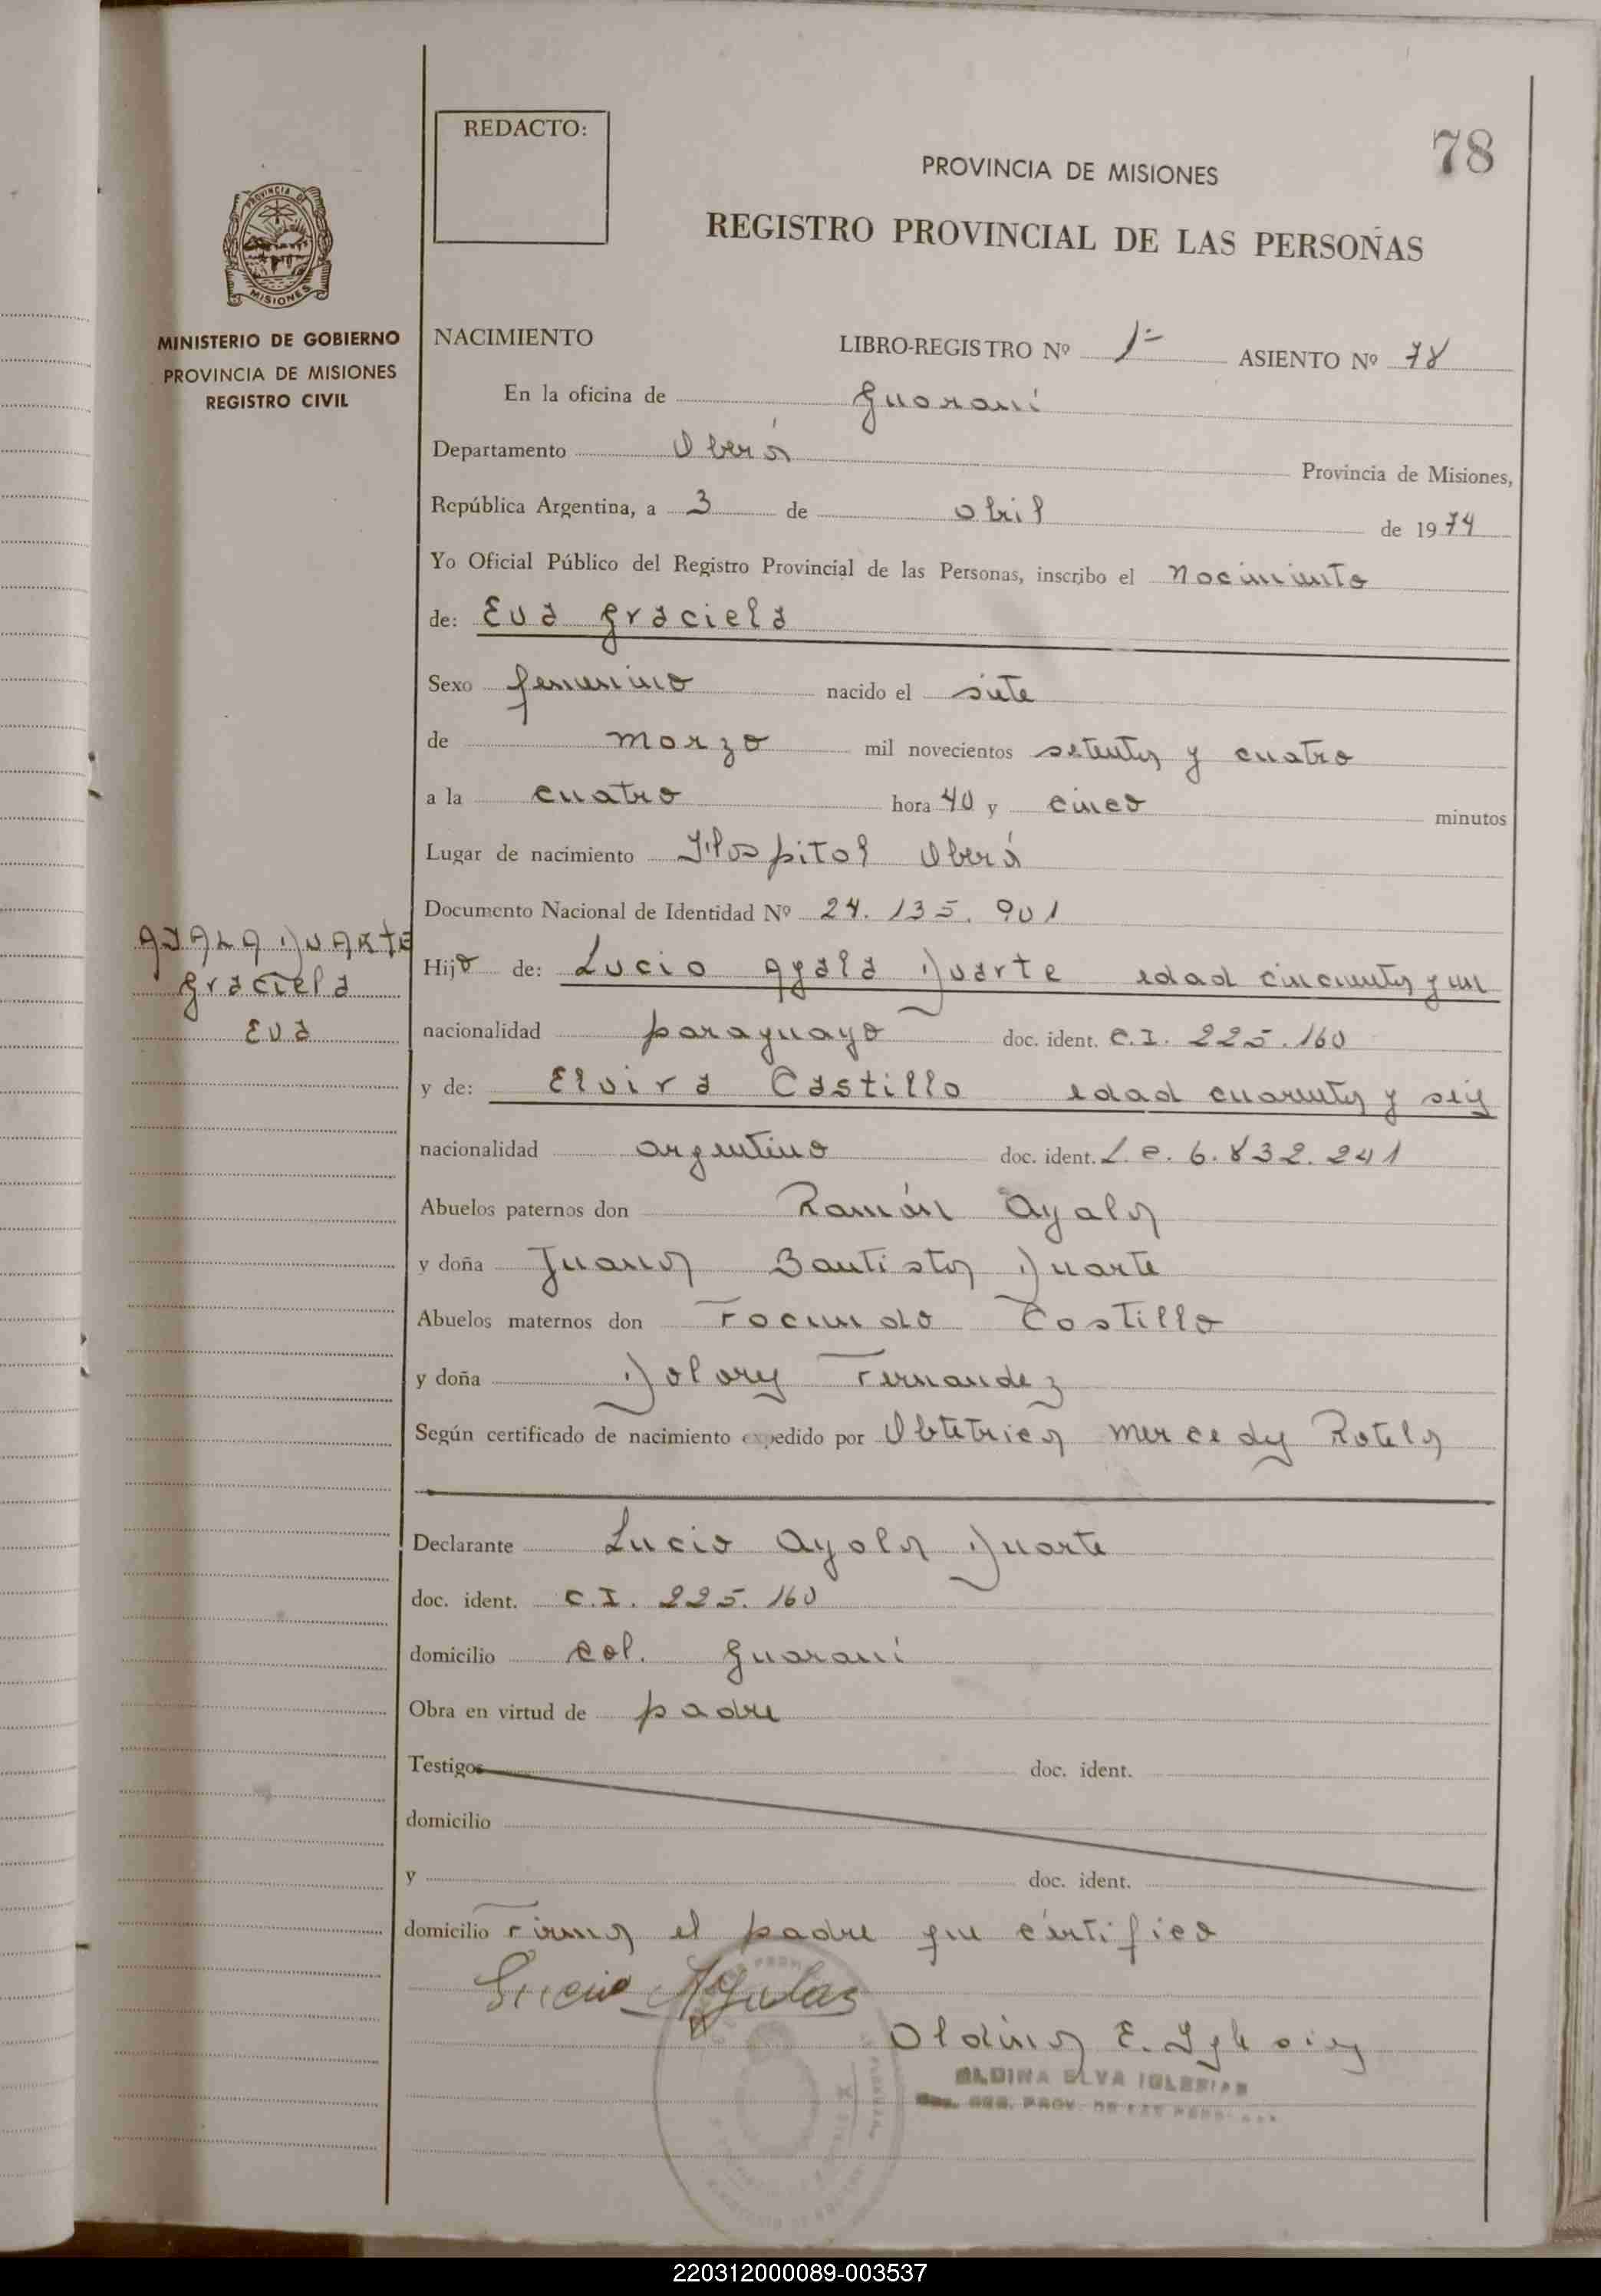 78
REDACTO:
PROVINCIA DE MISIONES
REGISTRO PROVINCIAL DE LAS PERSONAS
PROVINCIA DE
MISIONES
MINISTERIO DE GOBIERNO
PROVINCIA DE MISIONES
REGISTRO CIVIL
NACIMIENTO LIBRO-REGISTRO Nº 1= ASIENTO Nº 78
En la oficina de Guaraní
Departamento Oberá Provincia de Misiones,
República Argentina, a 3 de abril de 1974
Yo Oficial Público del Registro Provincial de las Personas, inscribo el Nacimiento
de: Eva Graciela
Sexo femenino nacido el siete
de marzo mil novecientos setenta y cuatro
a la cuatro hora 40 y cinco minutos
Lugar de nacimiento Hospital Oberá
Documento Nacional de Identidad Nº 24.135.901
AYALA DUARTE
Graciela
Eva
Hijo de: Lucio Ayala Duarte edad cincuenta y un
nacionalidad paraguayo doc. ident. C.I. 225.160
y de: Elvira Castillo edad cuarenta y seis
nacionalidad argentino doc. ident. L.C. 6.832.241
Abuelos paternos don Ramón Ayala
y doña Juana Bautista Duarte
Abuelos maternos don Facundo Castillo
y doña Dolores Fernandez
Según certificado de nacimiento expedido por Obtetrica Mercedes Rotela
Declarante Lucio Ayala Duarte
doc. ident. C.I. 225.160
domicilio Col. Guaraní
Obra en virtud de padre
Testigos doc. ident.
domicilio
y doc. ident.
domicilio Firma el padre que certifico
Lucio Ayalas
Oldina E. Iglesias
OLDINA ELVA IGLESIAS
REG. PROV. DE LAS PERSONAS
220312000089-003537